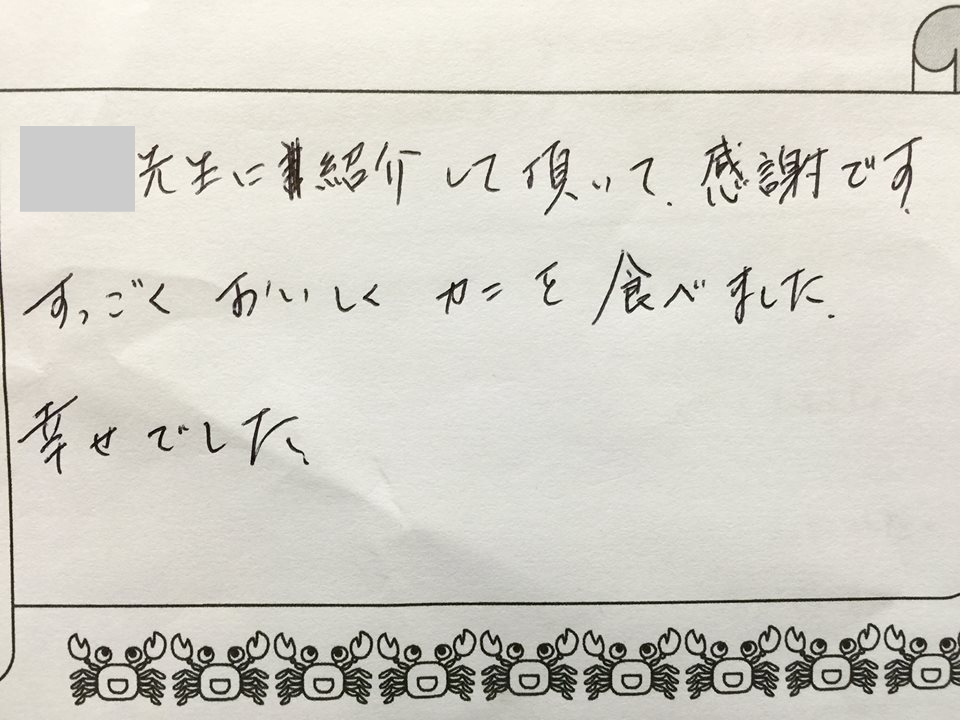 先生に紹介して頂いて、感謝です。
すっごくおいしくカニを食べました。
幸せでした。